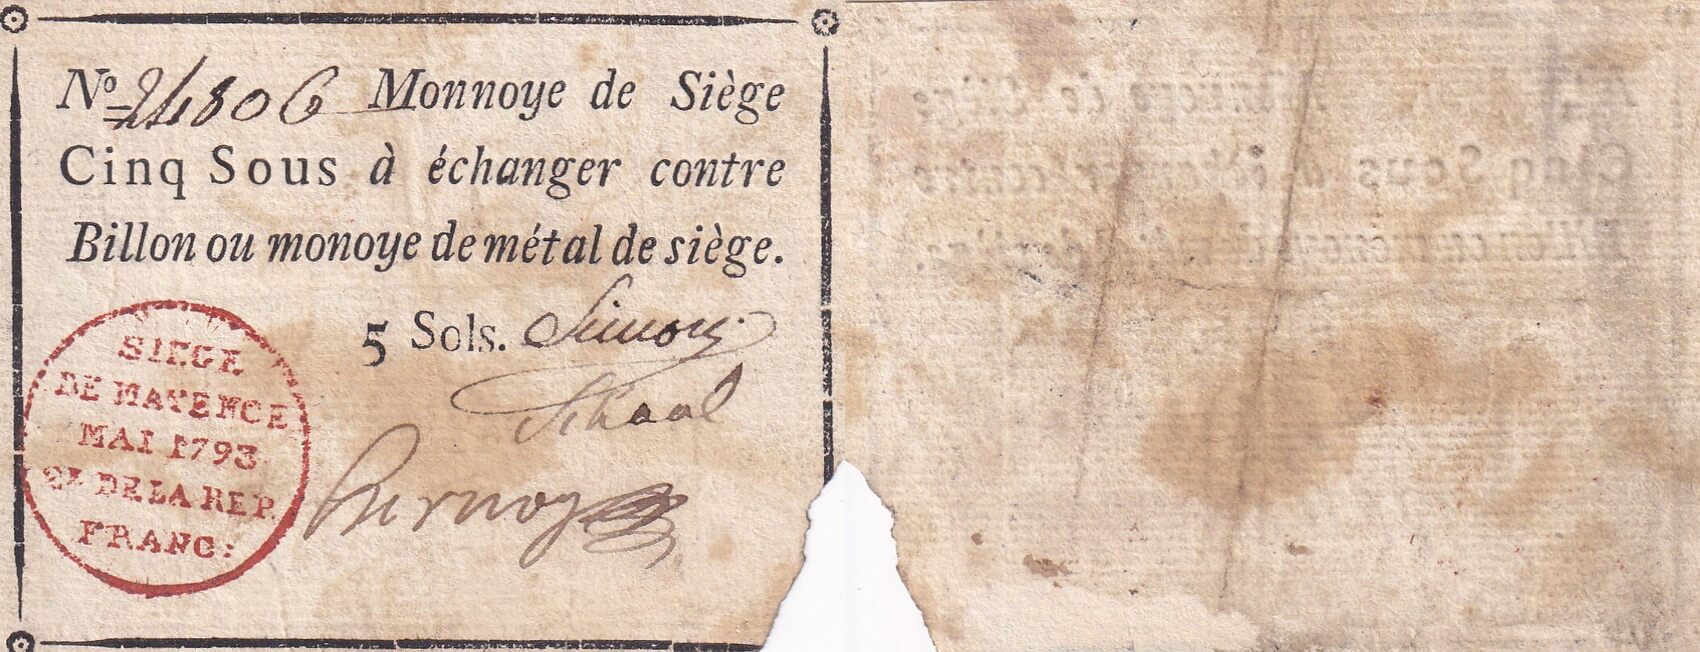 No 24806 Monnoye de Siège
Cinq Sous à échanger contre
Billon ou monoye de métal de siège.
5 Sols. Simon
Schaal
Bernoy
SIEGE
DE MAYENCE
MAI 1793
2E DE LA REP.
FRANC: